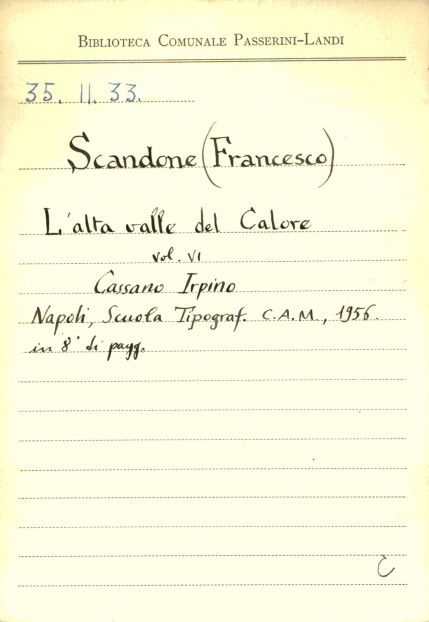 BIBLIOTECA COMUNALE PASSERINI-LANDI
35. II. 33.
Scandone (Francesco)
L'alta valle del Calore
vol. VI
Cassano Irpino
Napoli, Scuola Tipograf. C.A.M., 1956.
in 8° di pagg.
C